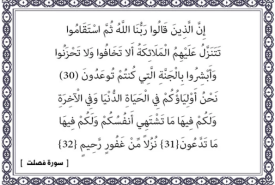 إِنَّ الَّذِينَ قَالُوا رَبُّنَا اللَّهُ ثُمَّ اسْتَقَامُوا
تَتَنَزَّلُ عَلَيْهِمُ الْمَلَائِكَةُ أَلَا تَخَافُوا وَلَا تَحْزَنُوا
وَأَبْشِرُوا بِالْجَنَّةِ الَّتِي كُنتُمْ تُوعَدُونَ (30)
نَحْنُ أَوْلِيَاؤُكُمْ فِي الْحَيَاةِ الدُّنْيَا وَفِي الْآخِرَةِ
وَلَكُمْ فِيهَا مَا تَشْتَهِي أَنفُسُكُمْ وَلَكُمْ فِيهَا
مَا تَدَّعُونَ {31} نُزُلاً مِّنْ غَفُورٍ رَّحِيمٍ {32}
[ سورة فصلت ]